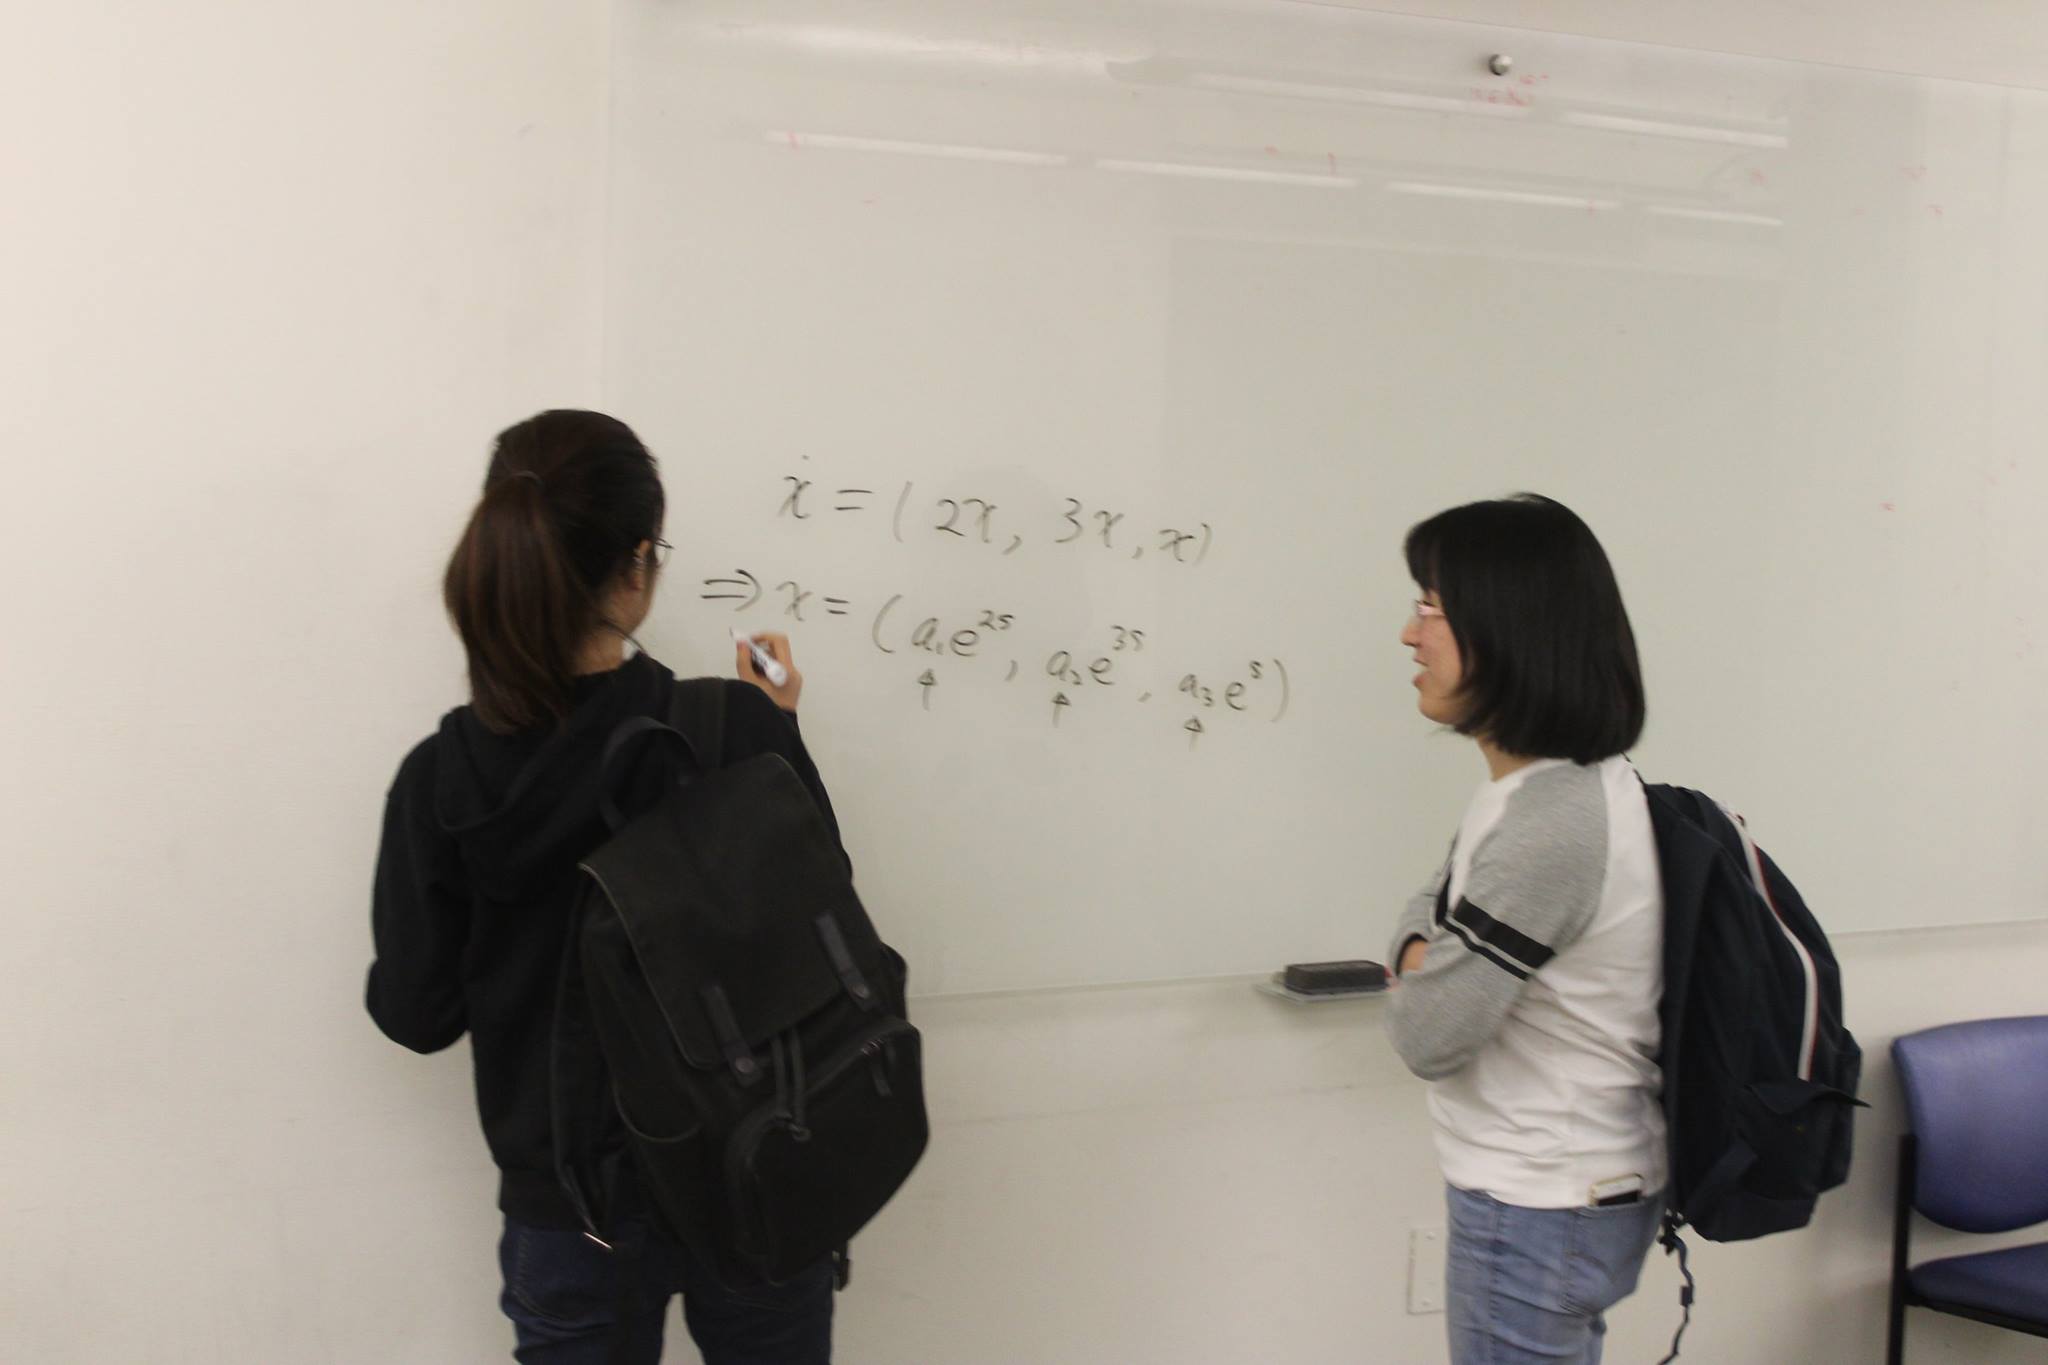 ẋ = (2x, 3x, x)
⇒ x = (a₁e²ˢ, a₂e³ˢ, a₃eˢ)
↑ ↑ ↑